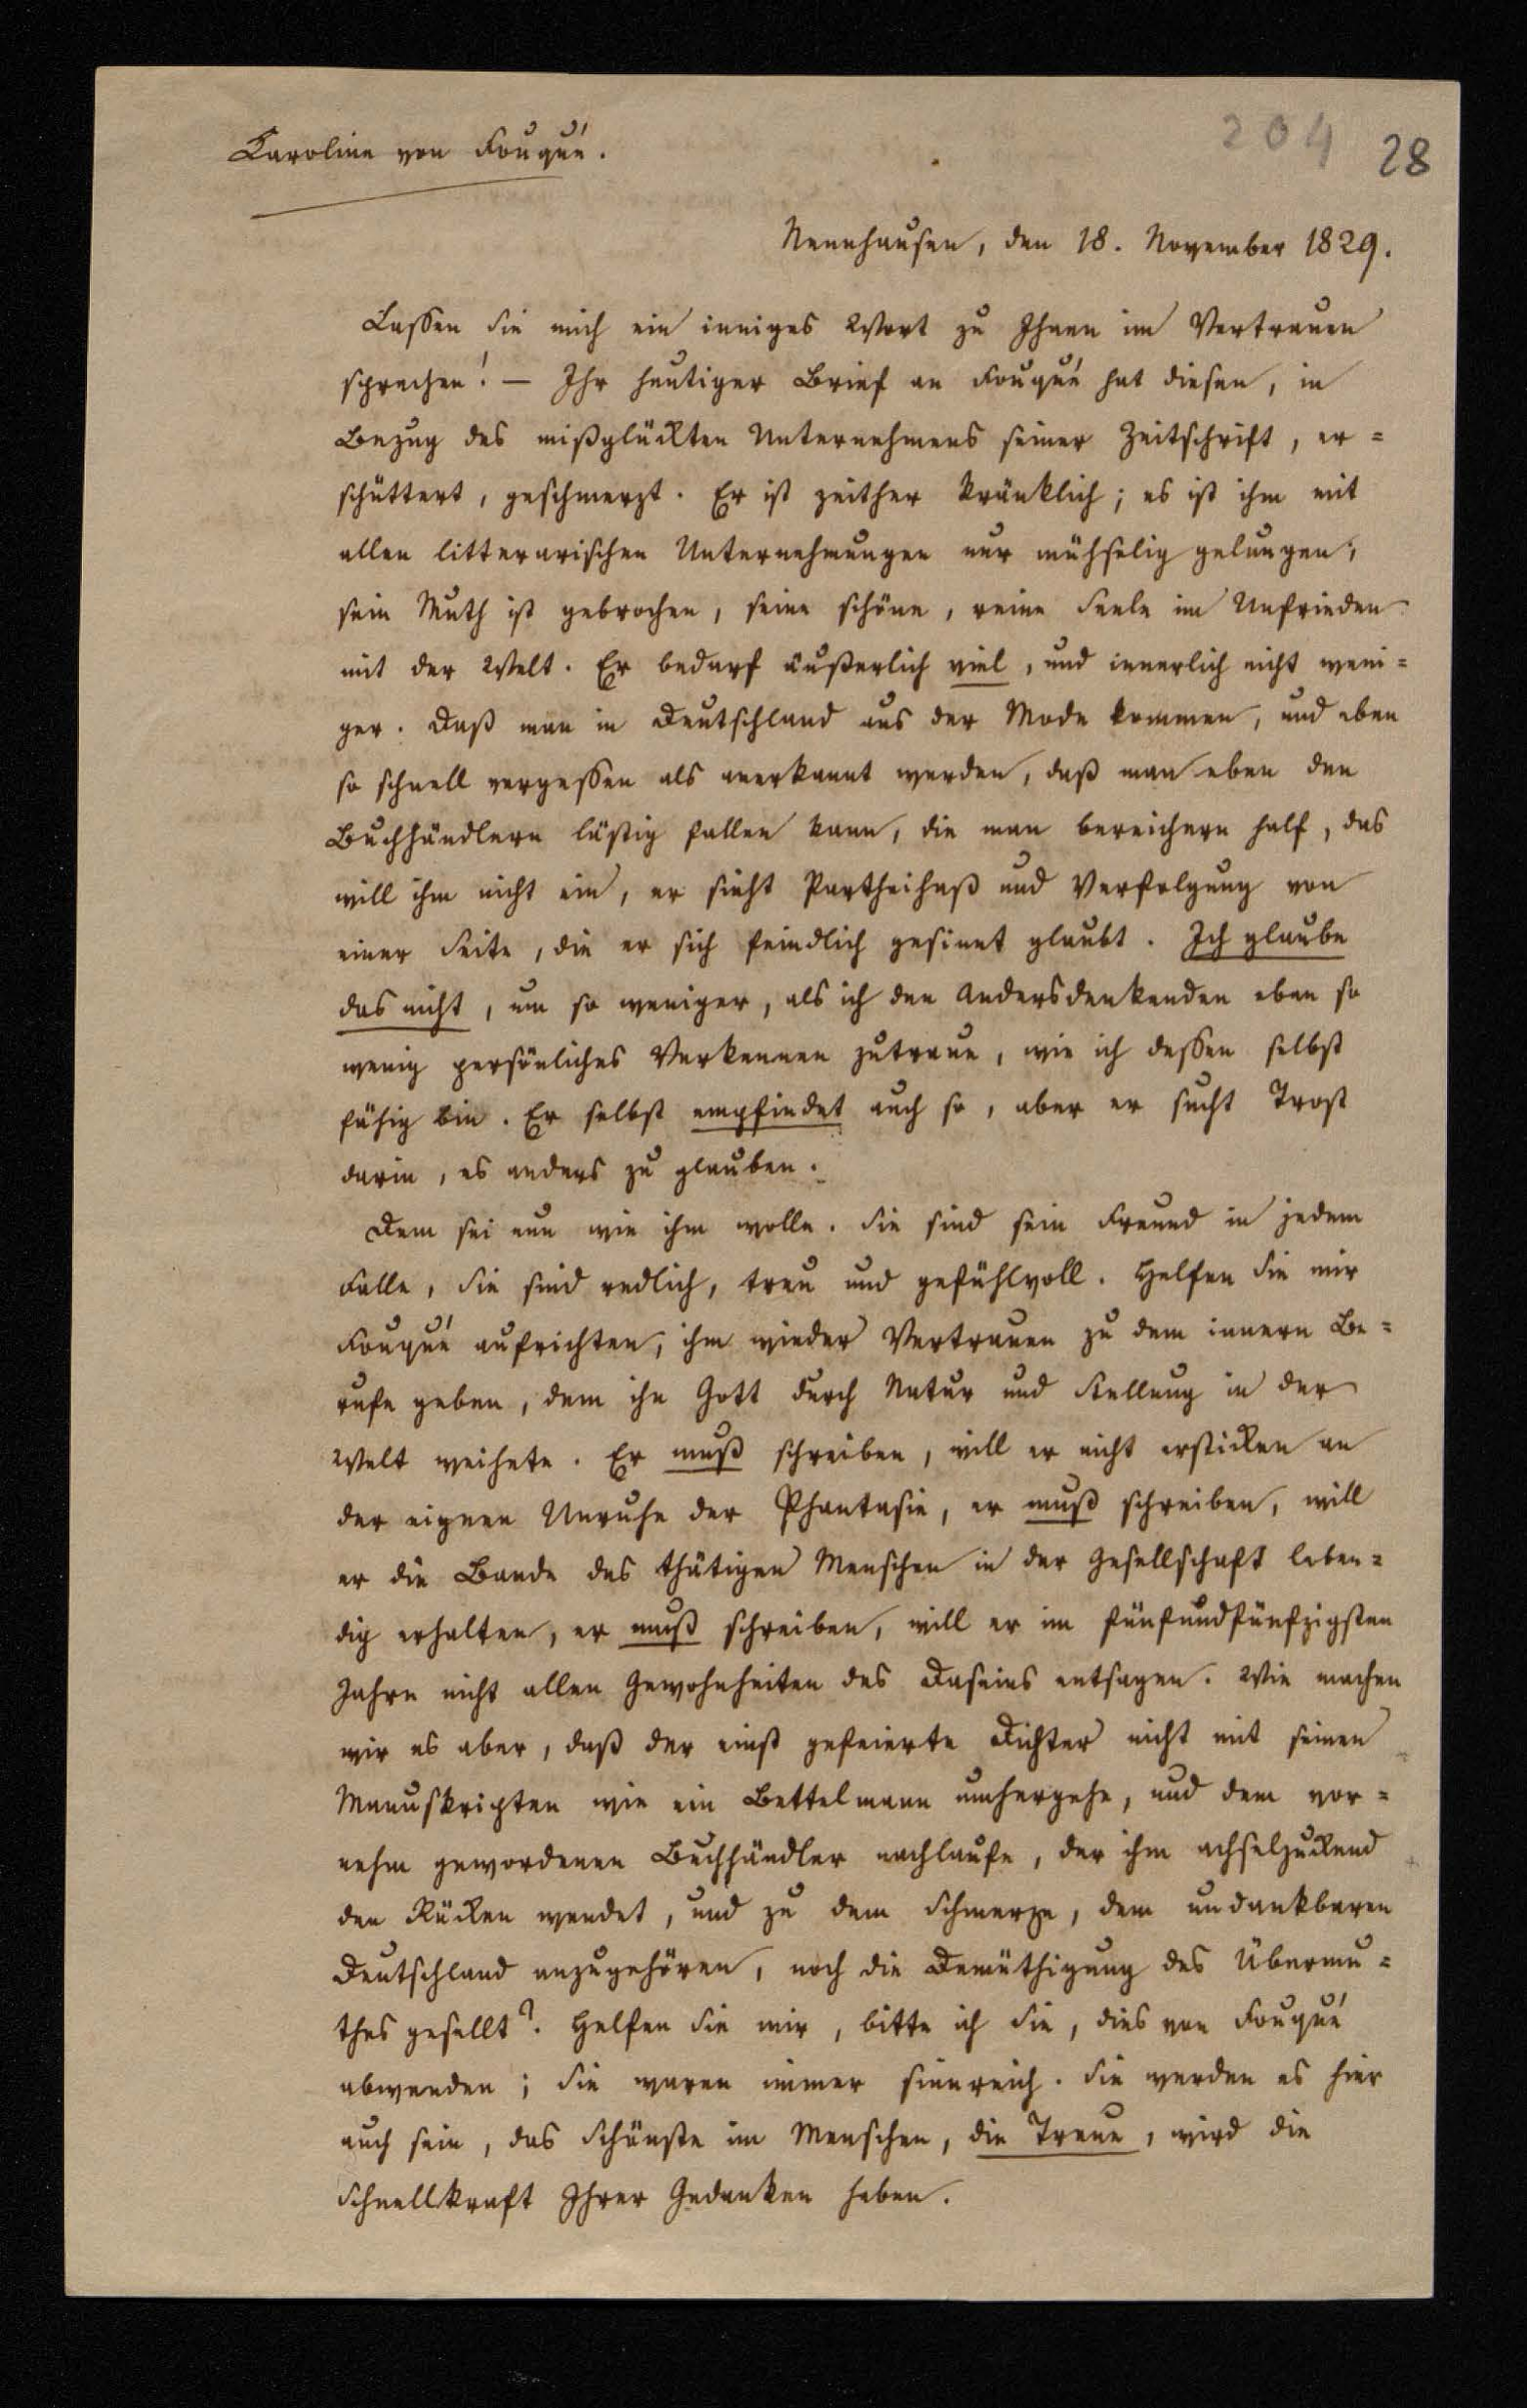 Caroline von Fouqué.
204 28
Nennhausen, den 18. November 1829.
Lassen Sie mich ein inniges Wort zu Ihnen im Vertrauen
sprechen! — Ihr heutiger Brief an Fouqué hat diesen, in
Bezug des mißglückten Unternehmens seiner Zeitschrift, er=
schüttert, geschmerzt. Er ist zeither kränklich; es ist ihm mit
allen litterarischen Unternehmungen nur mühselig gelungen,
sein Muth ist gebrochen, seine schöne, reine Seele im Unfrieden
mit der Welt. Er bedarf äußerlich viel, und innerlich nicht weni=
ger. Daß man in Deutschland aus der Mode kommen, und eben
so schnell vergessen als anerkannt werden, daß man eben den
Buchhändlern lästig fallen kann, die man bereichern half, das
will ihm nicht ein, er sieht Partheihaß und Verfolgung von
einer Seite, die er sich feindlich gesinnt glaubt. Ich glaube
das nicht, um so weniger, als ich den Andersdenkenden eben so
wenig persönliches Verkennen zutraue, wie ich dessen selbst
fähig bin. Er selbst empfindet auch so, aber er sucht Trost
darin, es anders zu glauben.
Dem sei nun wie ihm wolle. Sie sind sein Freund in jedem
Falle, Sie sind redlich, treu und gefühlvoll. Helfen Sie mir
Fouqué aufrichten, ihm wieder Vertrauen zu dem innern Be=
rufe geben, dem ihn Gott durch Natur und Stellung in der
Welt weihete. Er muß schreiben, will er nicht ersticken an
der eignen Unruhe der Phantasie, er muß schreiben, will
er die Bande des thätigen Menschen in der Gesellschaft leben=
dig erhalten, er muß schreiben, will er im fünfundfünfzigsten
Jahre nicht allen Gewohnheiten des Daseins entsagen. Wie machen
wir es aber, daß der einst gefeierte Dichter nicht mit seinen
Manuskripten wie ein Bettelmann umhergehe, und dem vor=
nehm gewordenen Buchhändler nachlaufe, der ihm achselzuckend
den Rücken wendet, und zu dem Schmerze, dem undankbaren
Deutschland anzugehören, noch die Demüthigung des Übermu=
thes gesellt? Helfen Sie mir, bitte ich Sie, dies von Fouqué
abwenden; Sie waren immer sinnreich. Sie werden es hier
auch sein, das Schönste im Menschen, die Treue, wird die
Schnellkraft Ihrer Gedanken heben.